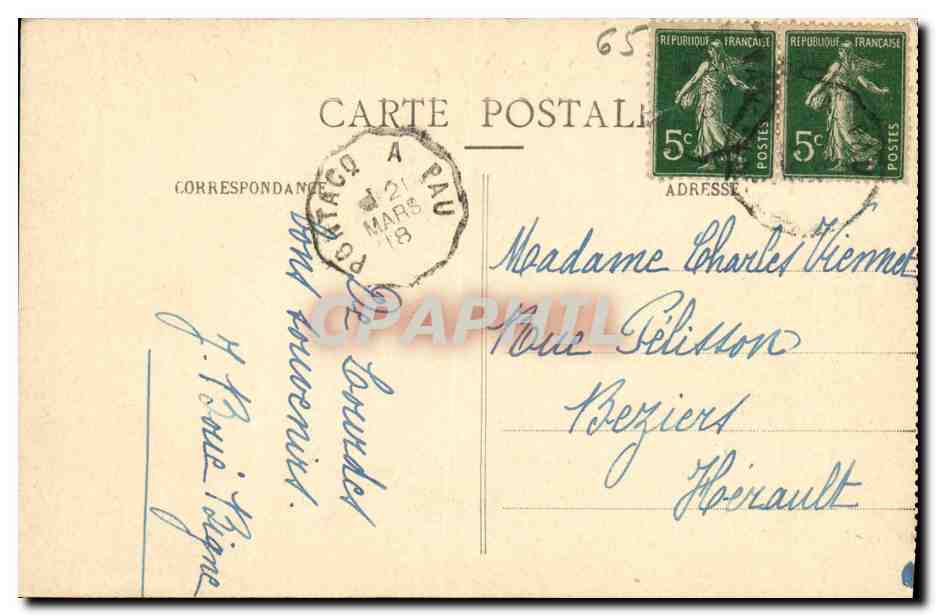 65
REPUBLIQUE FRANÇAISE
5c
POSTES
REPUBLIQUE FRANÇAISE
5c
POSTES
CARTE POSTALE
PONTACQ A PAU
21
MARS
18
CORRESPONDANCE
ADRESSE
De Lourdes
bons souvenirs.
Madame Charles Viennet
Rue Pélisson
Beziers
Hérault
CPAPHIL